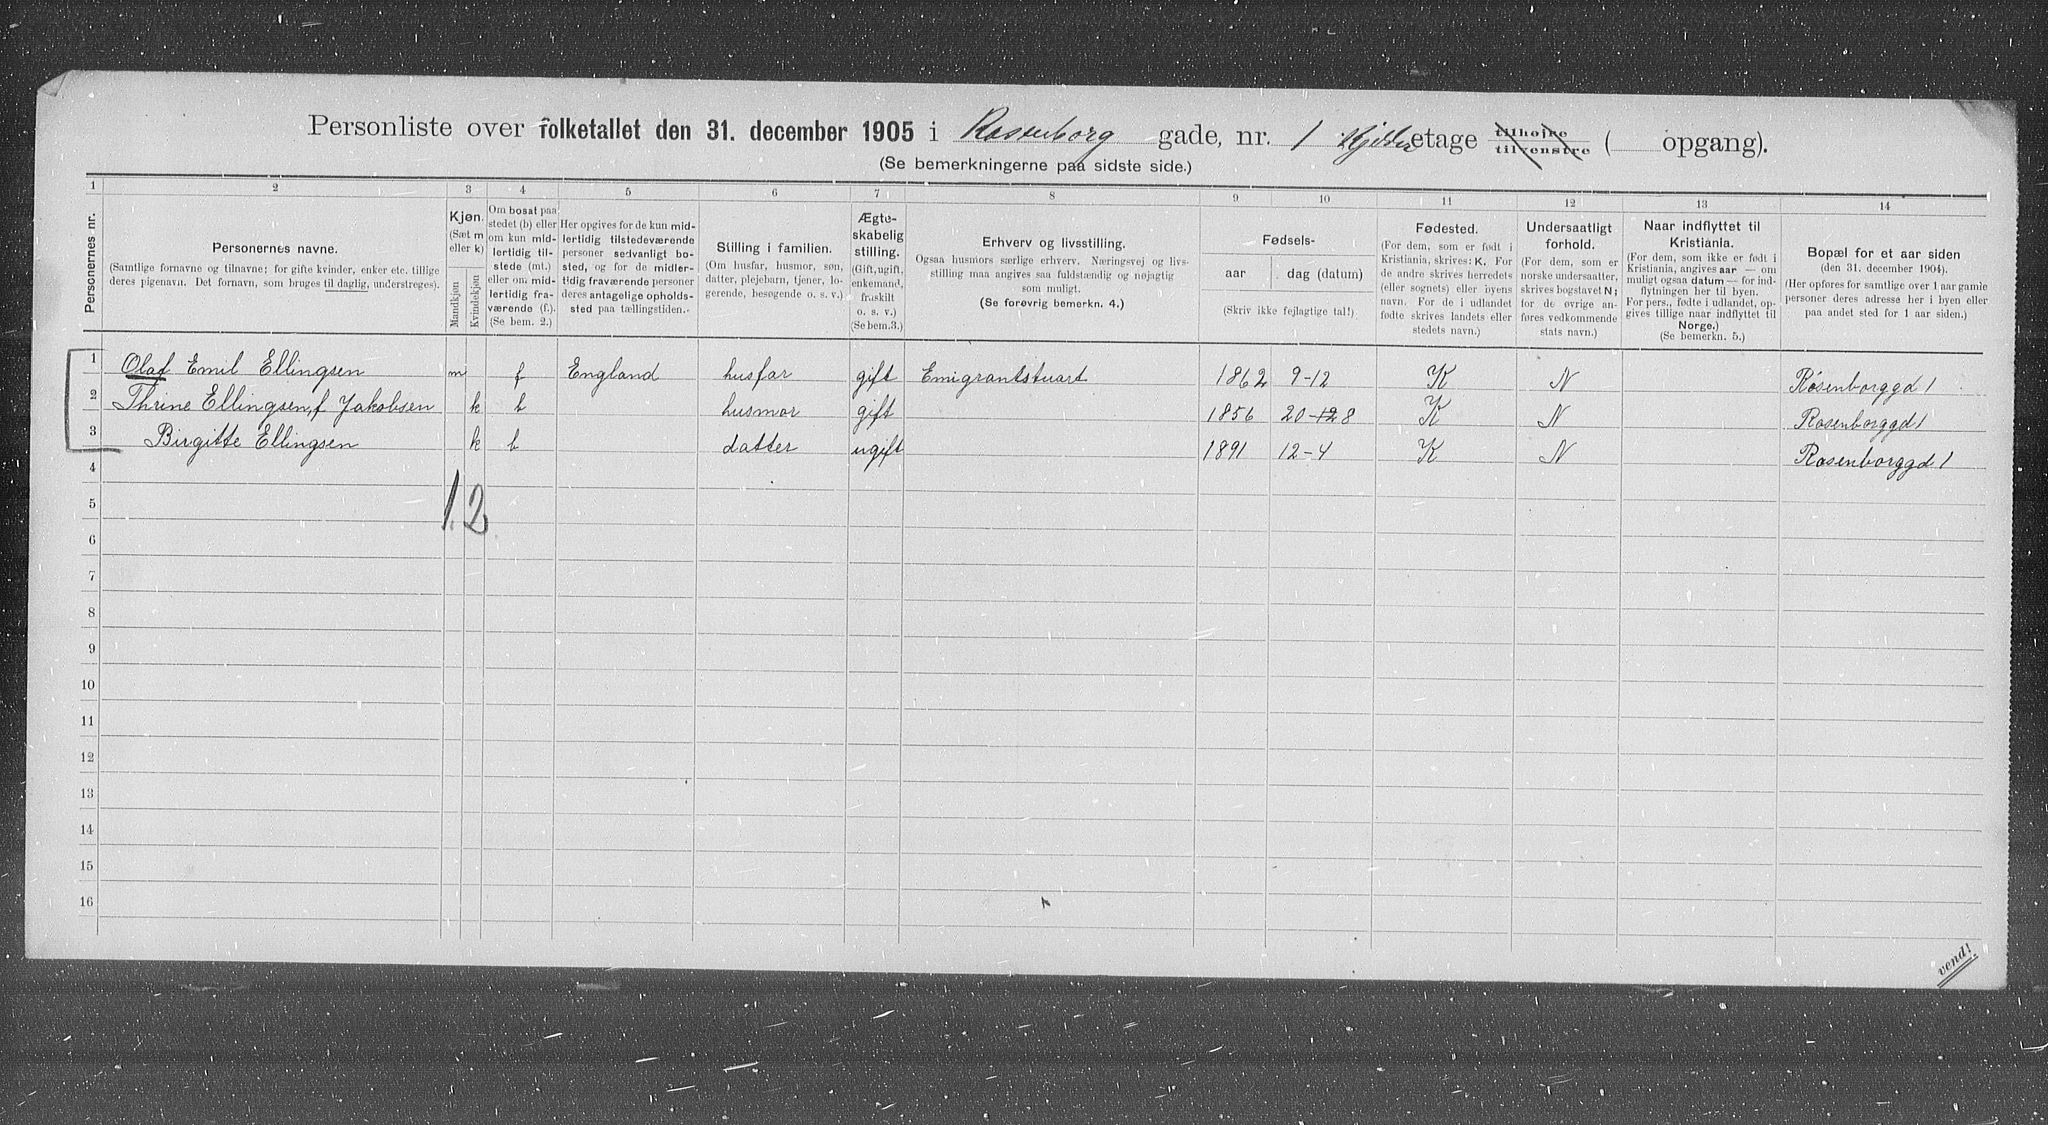 Personliste over folketallet den 31. december 1905 i Rosenborg gade, nr. 1 Kjelder etage tilhøire tilvenstre ( opgang).
(Se bemerkningerne paa sidste side.)
1 2 3 4 5 6 7 8 9 10 11 12 13 14
Personernes nr.
Personernes navne.
(Samtlige fornavne og tilnavne; for gifte kvinder, enker etc. tillige
deres pigenavn. Det fornavn, som bruges til daglig, understreges).
Kjøn.
(Sæt m
eller k)
Mandkjøn
Kvindekjøn
Om bosat paa
stedet (b) eller
om kun mid-
lertidig til-
stede (mt.)
eller om mid-
lertidig fra-
værende (f.).
(Se bem. 2.)
Her opgives for de kun mid-
lertidig tilstedeværende
personer sedvanligt bo-
sted, og for de midler-
tidig fraværende personer
deres antagelige opholds-
sted paa tællingstiden.
Stilling i familien.
(Om husfar, husmor, søn,
datter, plejebarn, tjener, lo-
gerende, besøgende o. s. v.)
Ægte-
skabelig
stilling.
(Gift, ugift,
enkemand,
fraskilt
o. s. v.)
(Se bem.3.)
Erhverv og livsstilling.
Ogsaa husmors særlige erhverv. Næringsvej og livs-
stilling maa angives saa fuldstændig og nøjagtig
som muligt.
(Se forøvrig bemerkn. 4.)
Fødsels-
aar dag (datum)
(Skriv ikke fejlagtige tal!).
Fødested.
(For dem, som er født i
Kristiania, skrives: K. For
de andre skrives herredets
(eller sognets) eller byens
navn. For de i udlandet
fødte skrives landets eller
stedets navn.)
Undersaatligt
forhold.
(For dem, som er
norske undersaatter,
skrives bogstavet N;
for de øvrige an-
føres vedkommende
stats navn.)
Naar indflyttet til
Kristiania.
(For dem, som ikke er født i
Kristiania, angives aar — om
muligt ogsaa datum — for ind-
flytningen her til byen.
For pers., fødte i udlandet, op-
gives tillige naar indflyttet til
Norge.)
(Se bemerkn. 5.)
Bopæl for et aar siden
(den 31. december 1904).
(Her opføres for samtlige over 1 aar gamle
personer deres adresse her i byen eller
paa andet sted for 1 aar siden.)
1 Olaf Emil Ellingsen m f England husfar gift Emigrantstuart 1862 9-12 K N Rosenborggd 1
2 Thrine Ellingsen, f Jakobsen k b husmor gift 1856 20-12 8 K N Rosenborggd 1
3 Birgitte Ellingsen k b datter ugift 1891 12-4 K N Rosenborggd 1
4
1.2
5
6
7
8
9
10
11
12
13
14
15
16
vend!